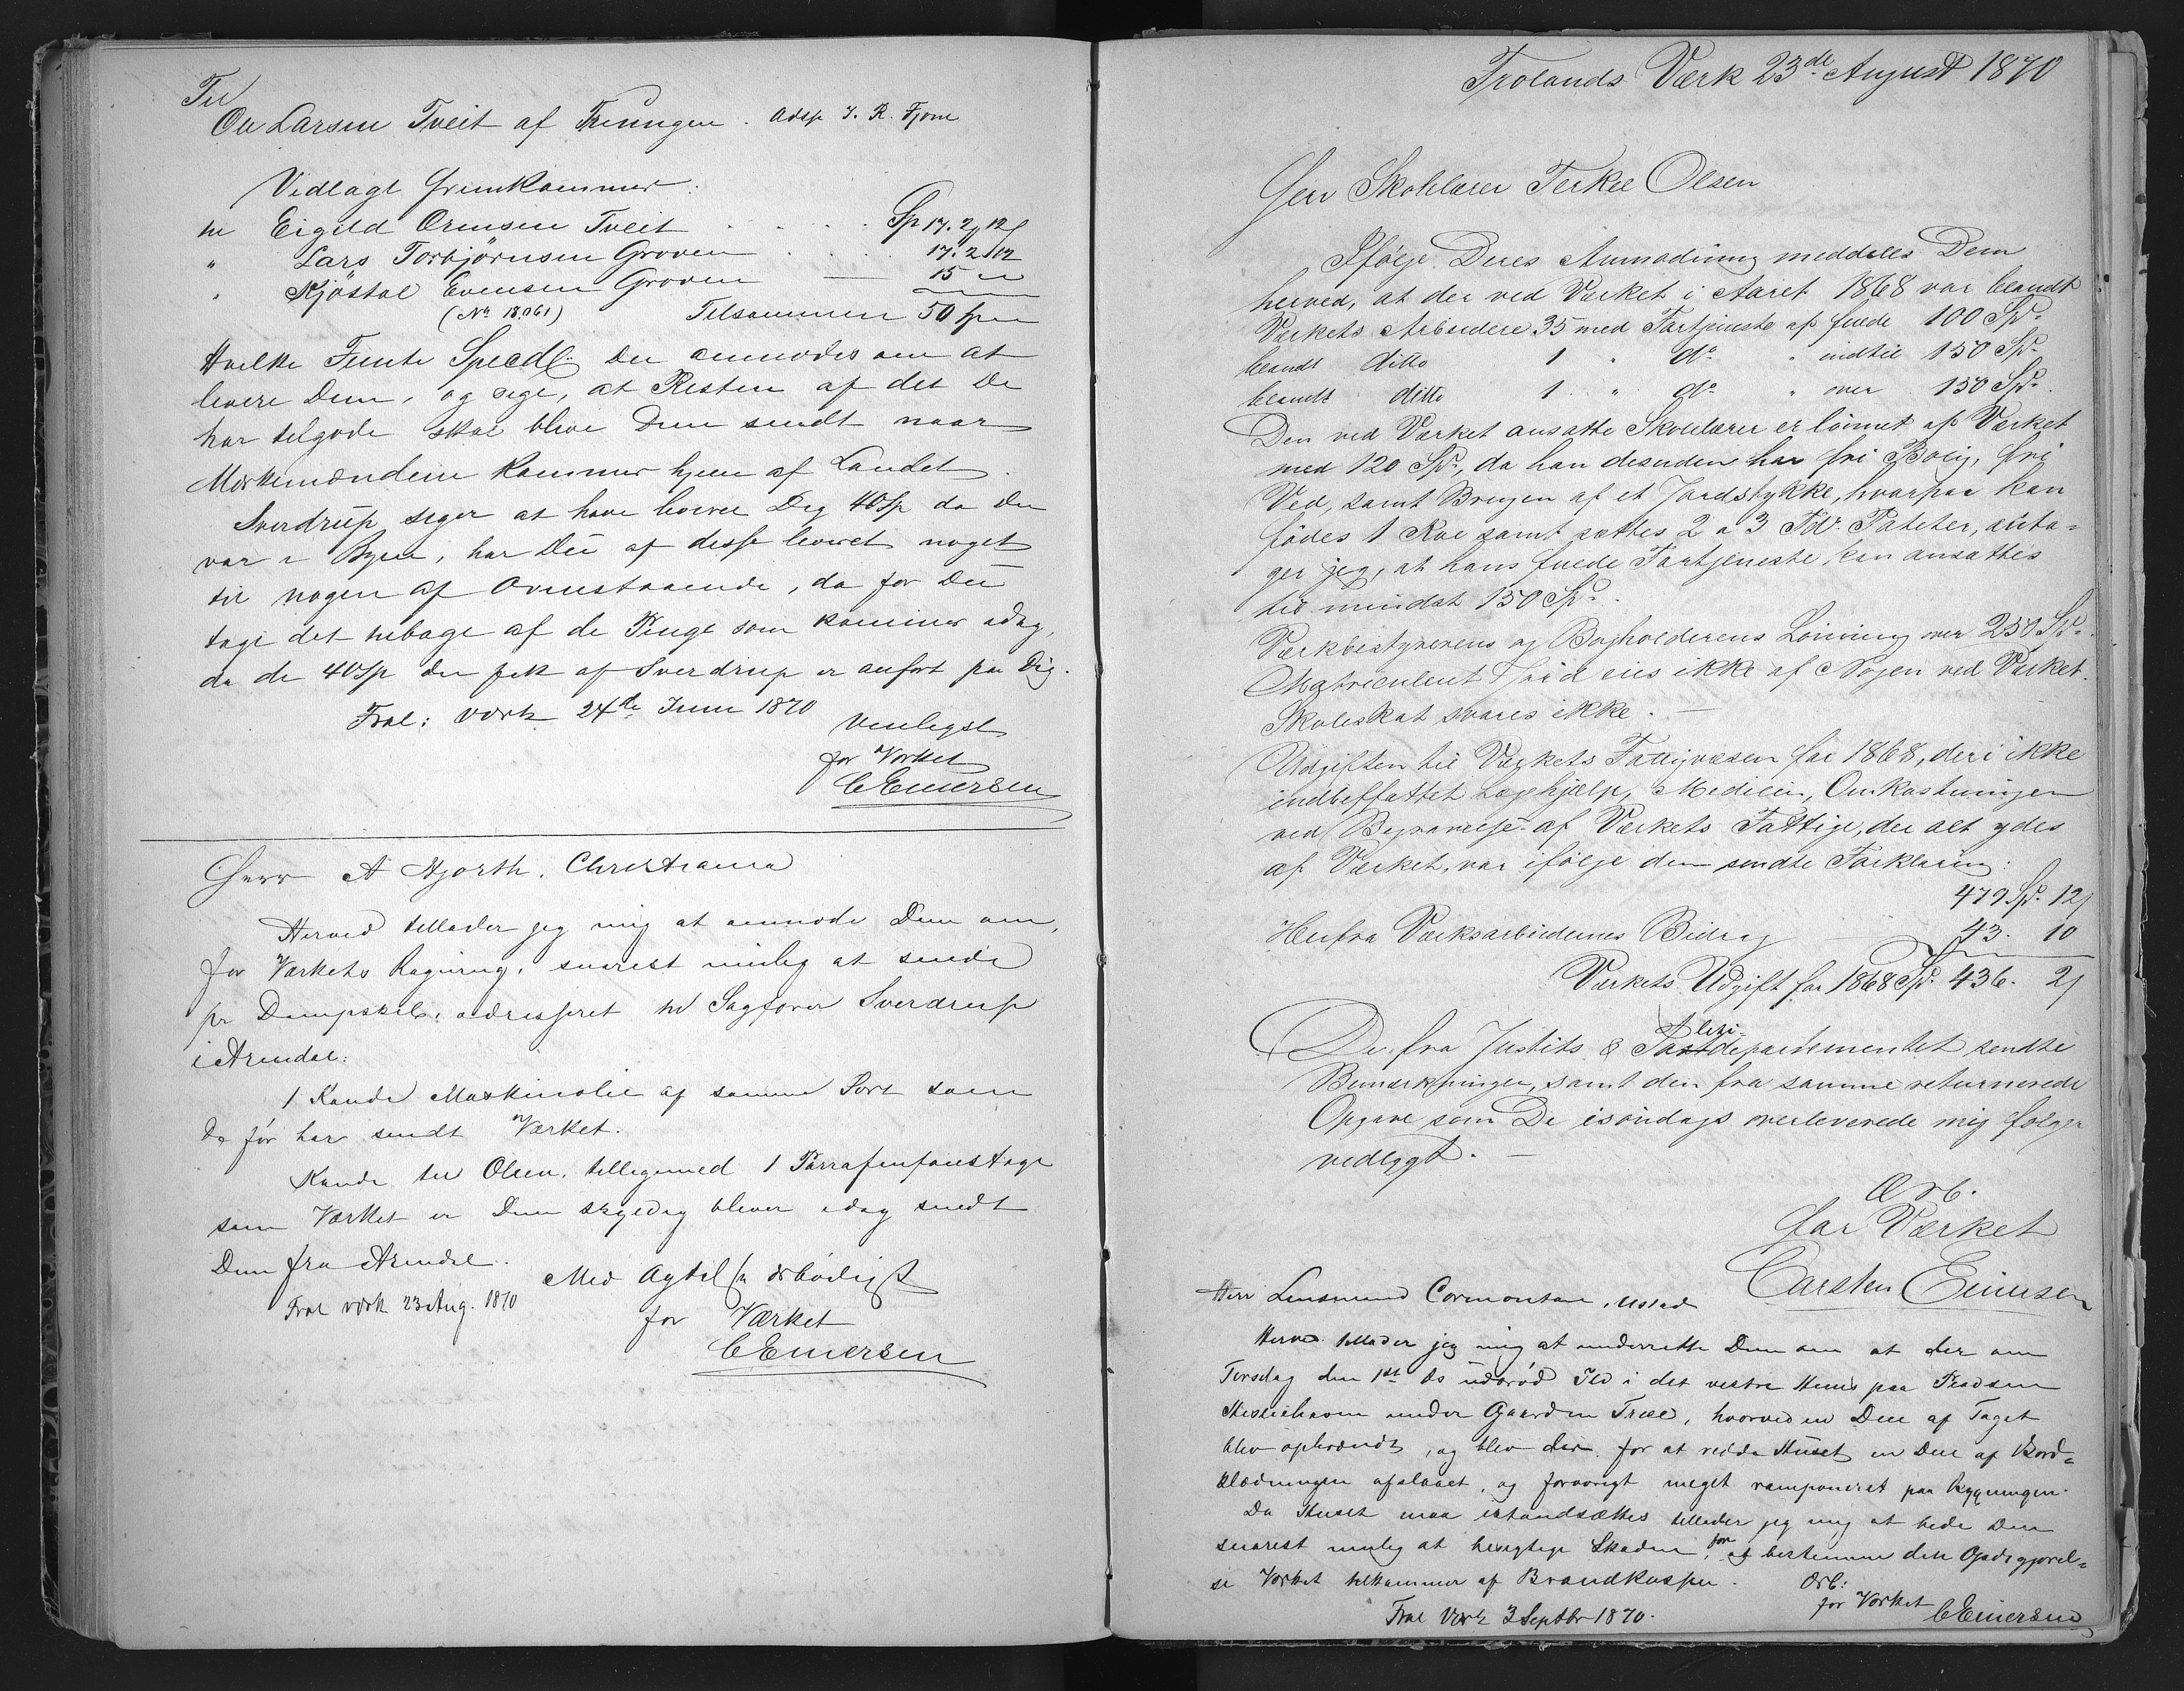 Til
Ole Larsen Tveit af Treungen. Adsp J. R. Fjone
Vedlagt fremkommer:
til Eigild Ormsen Tveit . . . . Sp 17. 2 12
" Lars Torbjørnsen Groven . . . 17. 2 12
" Kjøstol Evensen Groven — 15 "
(No 18061) Tilsammen 50 spd
Hvilke Femti Specdl. De anmodes om at
levere Dem, og sige, at Resten af det De
har tilgode skal blive Dem sendt naar
Merkemændene kommer hjem af Landet.
Sverdrup siger at have leveret Dig 40 Sp da Du
var i Byen, har Du af disse leveret noget
til nogen af Ovenstaaende, da faar Du
tage det tilbage af de Penge som kommer idag,
da de 40 Sp Du fik af Sverdrup er anført paa Dig.
Frol: Værk 24de Juni 1870
Venligst
for Værket
C Eimersen
Herr A Hjorth. Christiania
Herved tillader jeg mig at anmode Dem om,
for Værkets Regning, snarest mulig at sende
pr Dampskib, adresseret til Sagfører Sverdrup
i Arendal:
1 Kande Maskinolie af samme Sort som
De før har sendt Værket.
Kande til Olien, tilligemed 1 Parrafinfoustage
som Værket er Dem skyldig bliver idag sendt
Dem fra Arendal.
Med Agtelse ærbødigst
Frol værk 23 Aug. 1870
for Værket
C Eimersen
Frolands Værk 23de August 1870
Herr Skolelærer Terkel Olsen
Ifølge Deres Anmodning meddeles Dem
herved, at der ved Værket i Aaret 1868 var blandt
Værkets Arbeidere 35 med Fortjeneste af fulde 100 Spd.
blandt ditto 1 " do " indtil 150 Spd.
blandt ditto 1 " do " over 150 Spd.
Den ved Værket ansatte Skolelærer er lønnet af Værket
med 120 Spd., da han desuden har fri Bolig, fri
Ved, samt Brugen af et Jordstykke, hvorpaa kan
fødes 1 Ko samt sættes 2 a 3 Tdr. Poteter, anta=
ger jeg, at hans fulde Fortjeneste kan ansættes
til mindst 150 Spd.
Værkbestyrerens og Bogholderens Lønning over 250 Spd.
Matriculeret Jord eies ikke af Nogen ved Værket.
Skoleskat svares ikke. —
Udgiften til Værkets Fattigvæsen for 1868, deri ikke
indbefattet Lægehjælp, Medicin, Omkostninger
ved Begravelse af Værkets Fattige, der alt ydes
af Værket, var ifølge den sendte Forklaring:
479 Spd. 12
Herfra Værksarbeidernes Bidrag — 43. 10
Værkets Udgift for 1868 Spd. 436. 2
De fra Justits & Politidepartementet sendte
Bemærkninger, samt den fra samme returnerede
Opgave som De isøndags overleverede mig følger
vedlagt. —
Ærb.
for Værket
Carsten Eimersen
Herr Lensmand Cormontan, Ustad
Herved tillader jeg mig at underrette Dem om at der om
Torsdag den 1st ds udbrød Ild i det vestre Huus paa Pladsen
under Gaarden Træe, hvorved en Deel af Taget
blev opbrændt, og blev der for at redde Huset en Deel af Bord=
klædningen afslaaet, og forøvrigt meget ramponeret paa Bygningen.
Da Huset maa istandsættes tillader jeg mig at bede Dem
snarest mulig at besigtige Skaden, for at bestemme den Godtgjørel=
se Værket tilkommer af Brandkassen.
Ærb:
for Værket
Frol Værk 3 Septbr 1870.
C Eimersen